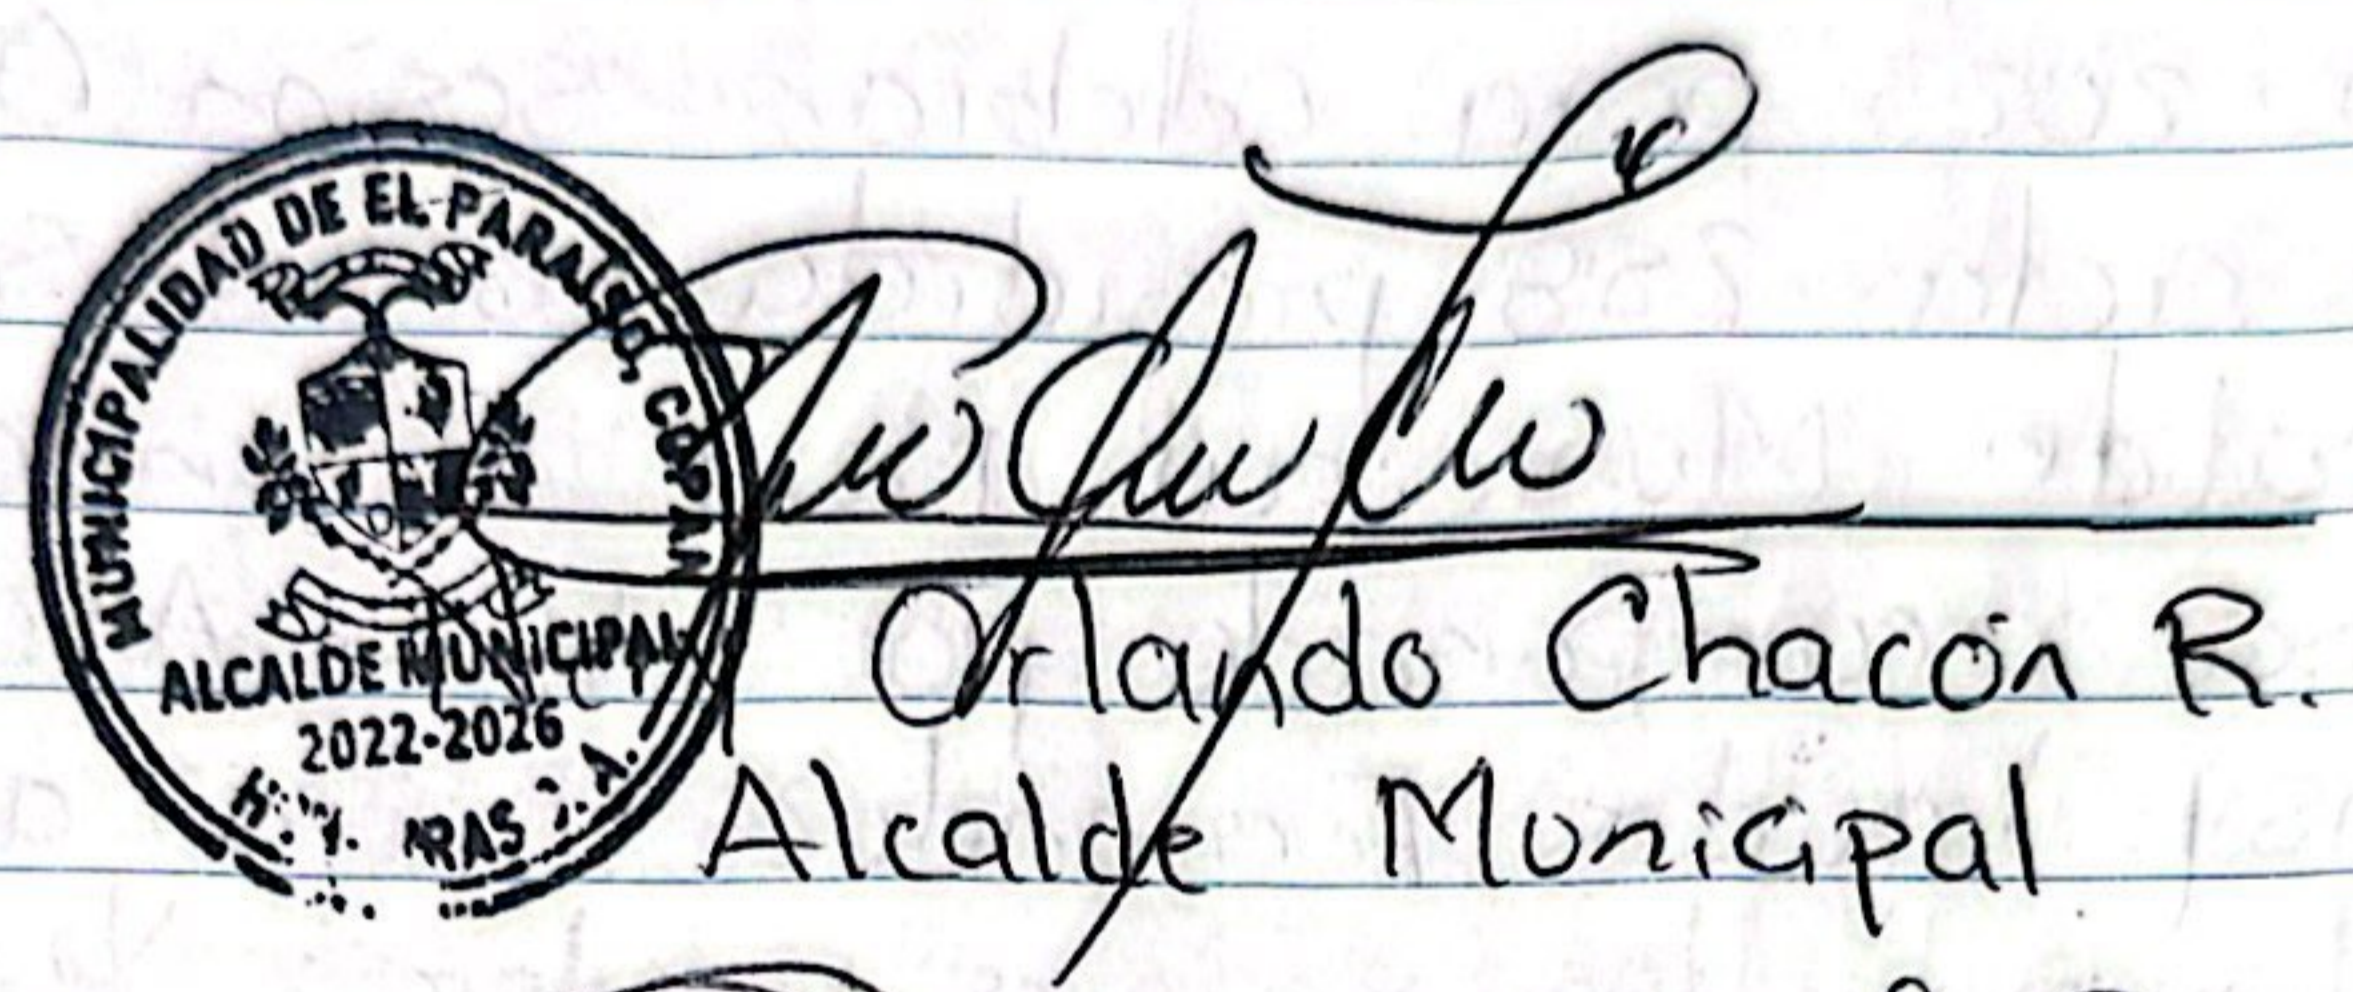 MUNICIPALIDAD DE EL PARAISO, COPAN
ALCALDE MUNICIPAL
2022-2026
Orlando Chacón R.
Alcalde Municipal